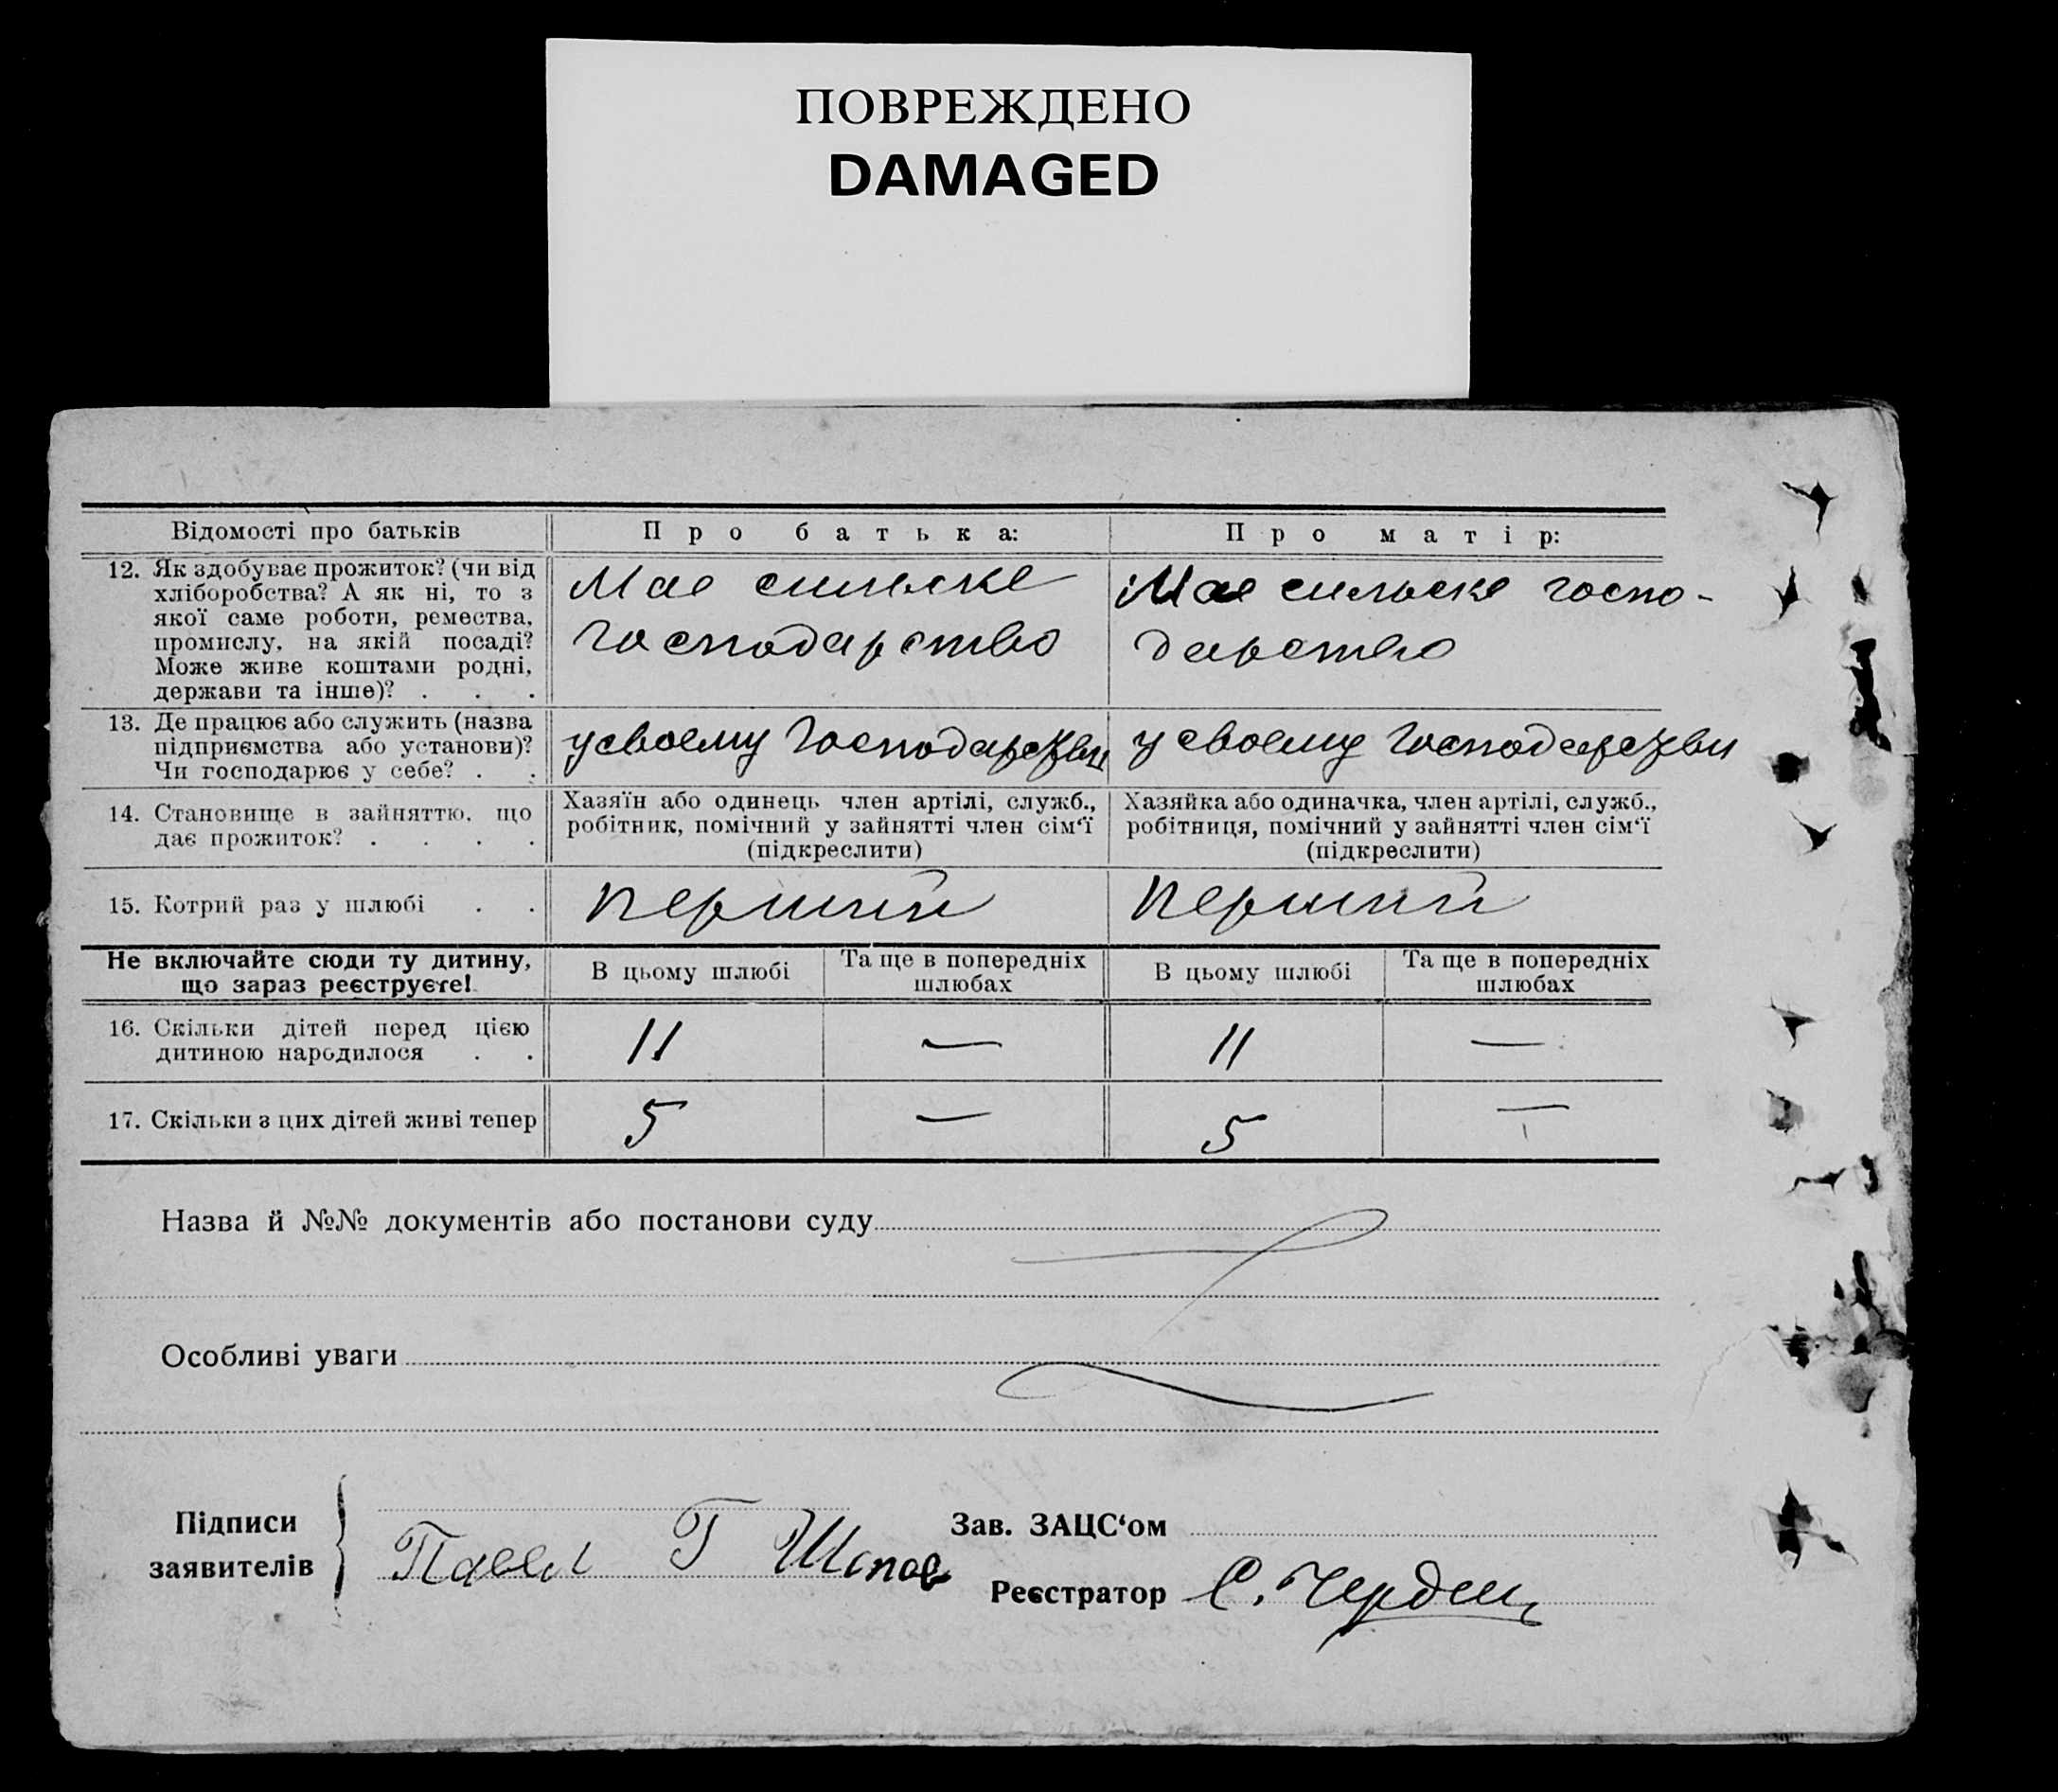 ПОВРЕЖДЕНО
DAMAGED
Відомості про батьків
Про батька:
Про матір:
12. Як здобуває прожиток? (чи від
хліборобства? А як ні, то з
якої саме роботи, ремества,
промислу, на якій посаді?
Може живе коштами родні,
держави та інше)? . . .
Має сильске
господарство
Має сильске госпо-
дарство
13. Де працює або служить (назва
підприємства або установи)?
Чи господарює у себе? . .
у своєму господарстви
у своєму господарстви
14. Становище в зайняттю, що
дає прожиток? . . . .
Хазяїн або одинець член артілі, служб.,
робітник, помічний у зайнятті член сім‘ї
(підкреслити)
Хазяйка або одиначка, член артілі, служб.,
робітниця, помічний у зайнятті член сім‘ї
(підкреслити)
15. Котрий раз у шлюбі . .
перший
перший
Не включайте сюди ту дитину,
що зараз реєструєте!
В цьому шлюбі
Та ще в попередніх
шлюбах
В цьому шлюбі
Та ще в попередніх
шлюбах
16. Скільки дітей перед цією
дитиною народилося . .
11
—
11
—
17. Скільки з цих дітей живі тепер
5
—
5
—
Назва й №№ документів або постанови суду
Особливі уваги
Підписи
заявителів
Павел Г
Зав. ЗАЦС‘ом
Реєстратор С.